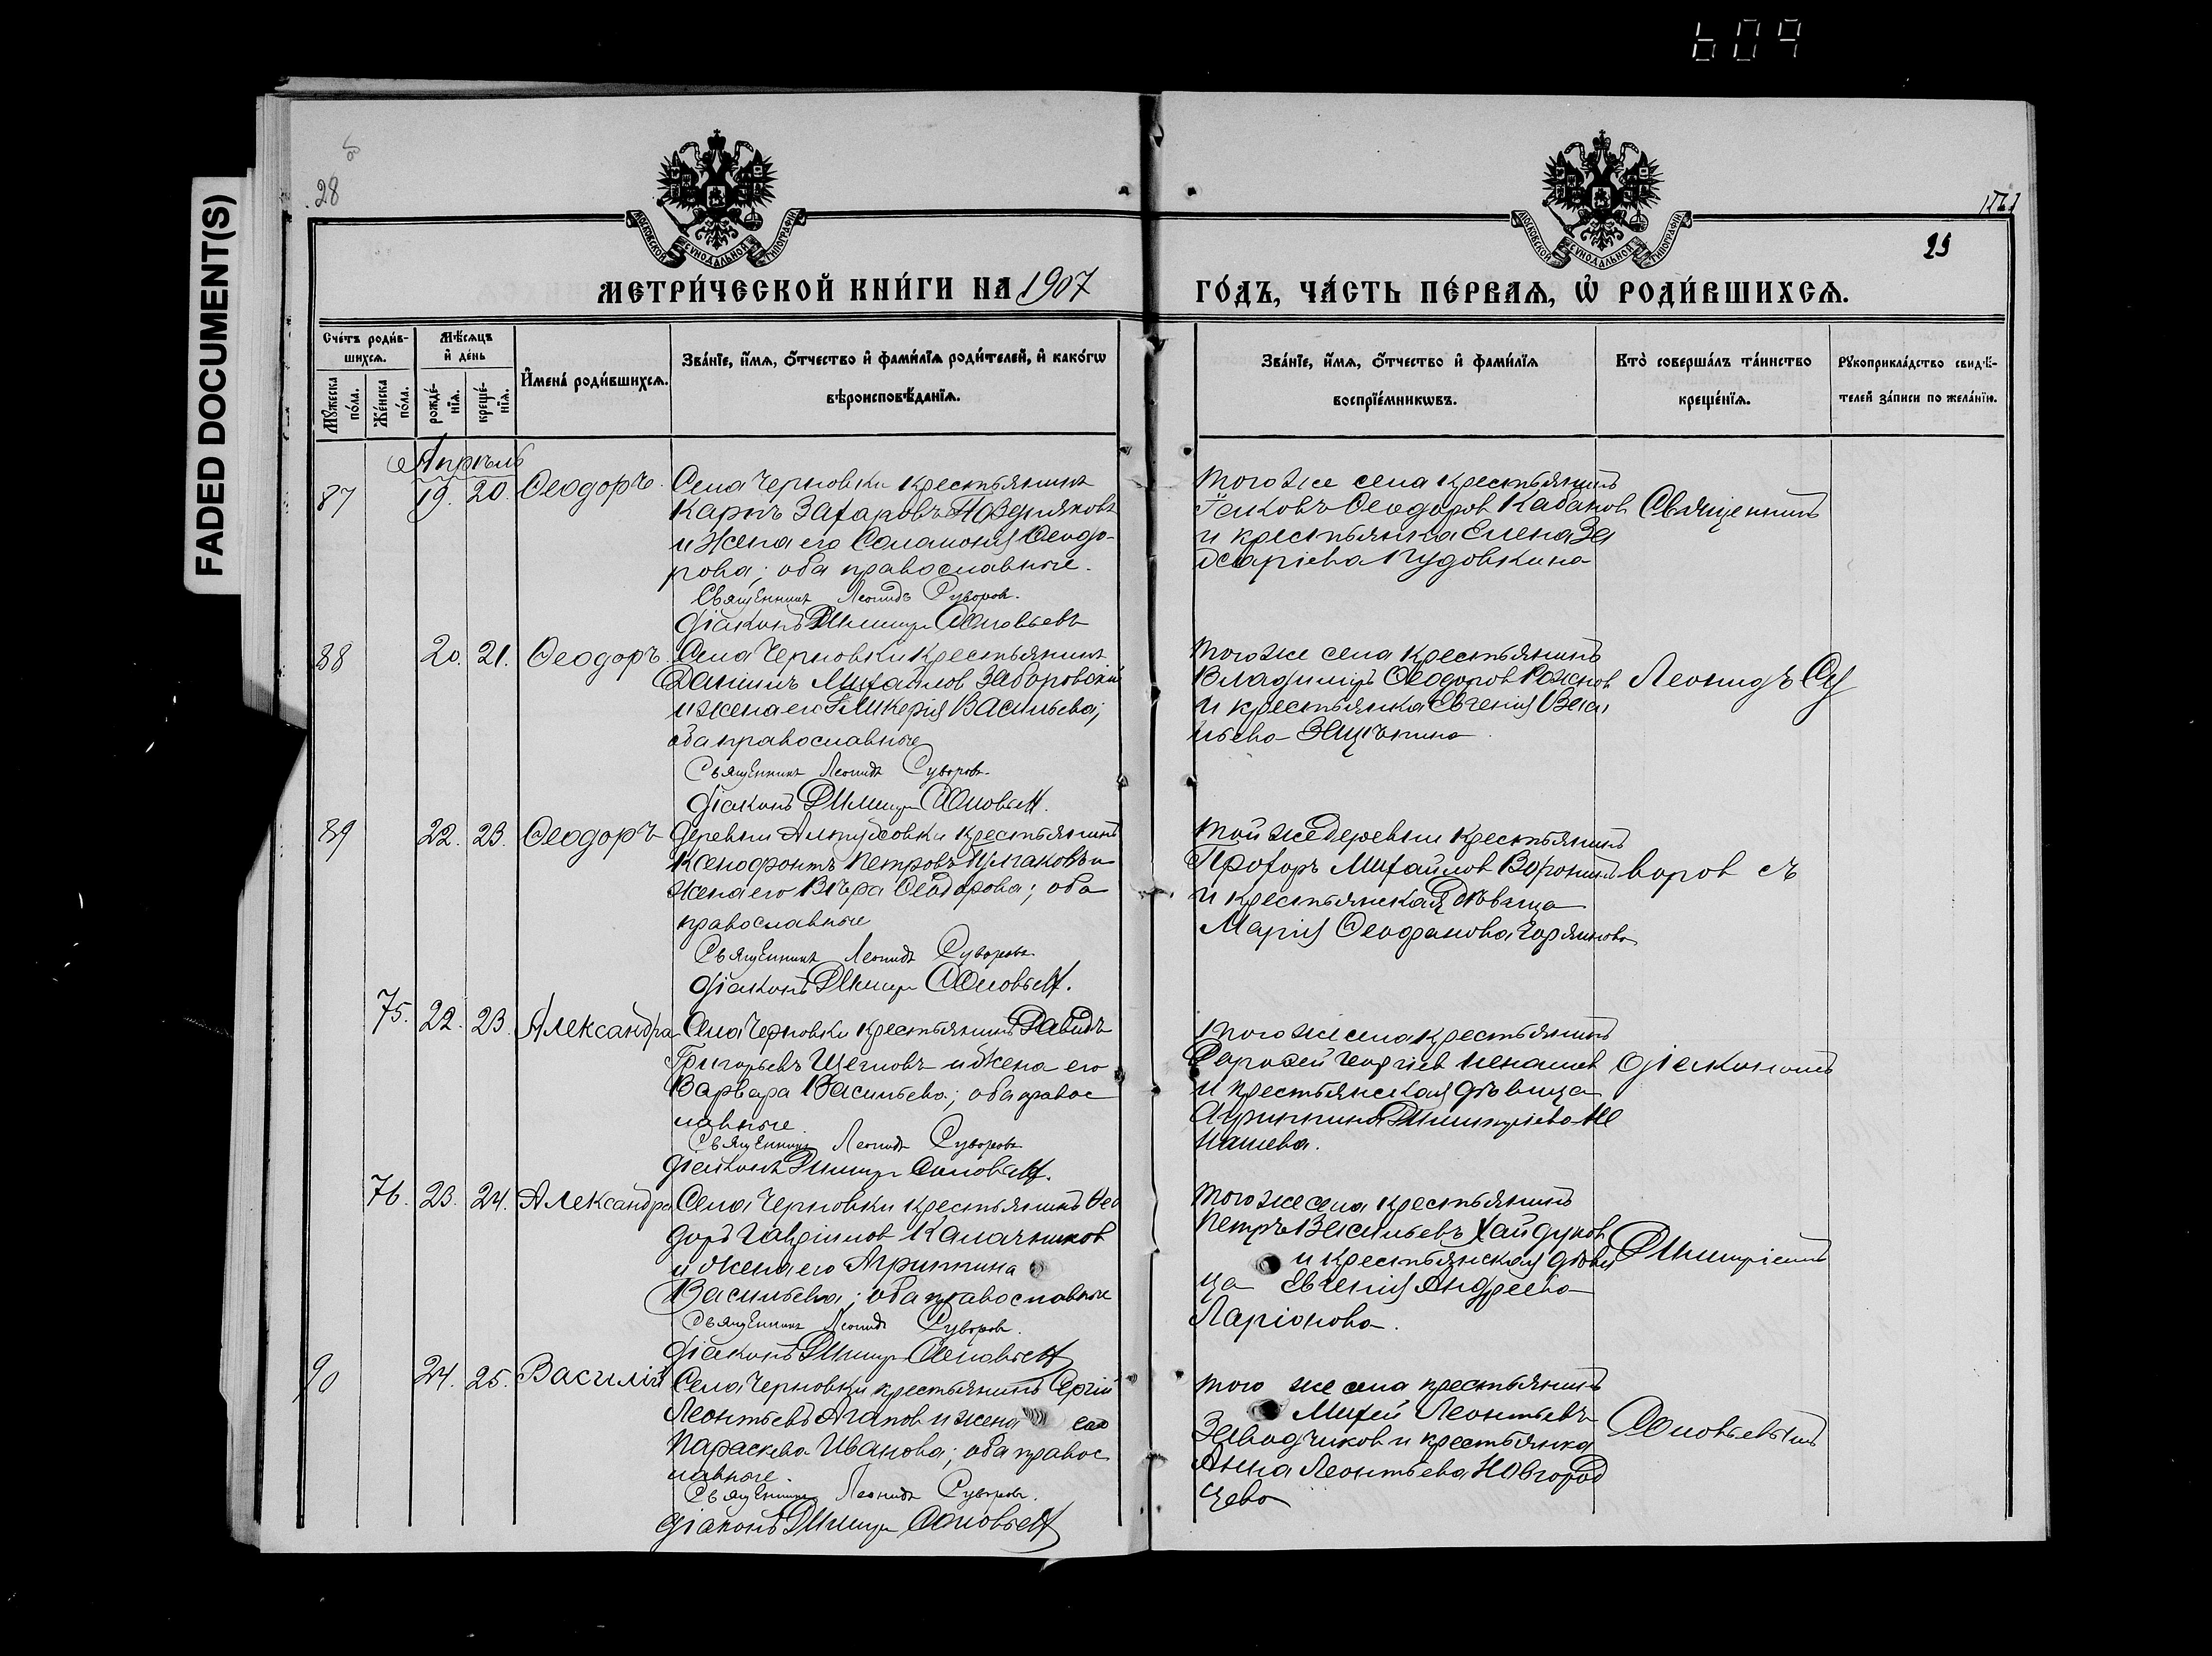 609
FADED DOCUMENT(S)
28
25
МОСКОВСКОЙ СУНОДАЛЬНОЙ ТИПОГРАФІИ
МОСКОВСКОЙ СУНОДАЛЬНОЙ ТИПОГРАФІИ
МЕТРИ́ЧЕСКОЙ КНИ́ГИ НА 1907
ГО́ДЪ, ЧА́СТЬ ПЕ́РВАѦ, Ѡ҆ РОДИ́ВШИХСѦ.
Сче́тъ роди́в-
шихсѧ.
Мꙋжеска по́ла.
Же́нска по́ла.
Мѣ́сѧцъ
и҆ де́нь
рожде́-
нїѧ.
креще́-
нїѧ.
И҆мена́ роди́вшихсѧ.
Зва́нїе, и҆́мѧ, ѻ҆́тчество и҆ фами́лїѧ роди́телей, и҆ како́гѡ
вѣроисповѣ́данїѧ.
Зва́нїе, и҆́мѧ, ѻ҆́тчество и҆ фами́лїѧ
воспрїе́мникѡвъ.
Кто̀ соверша́лъ та́инство
креще́нїѧ.
Рꙋкоприкла́дство свидѣ́-
телей за́писи по жела́нїю.
Апрѣль
87 19. 20. Ѳеодоръ.
Села Черновки крестьянинъ
Карпъ Захаровъ Поздняковъ
и жена его Соломонія Ѳеодо-
рова; оба православные.
Священникъ Леонидъ Суворовъ.
Діаконъ Димитр Соловьевъ
того же села крестьянинъ
Іаковъ Ѳеодоров Кабанов
и крестьянка Елена За
харіева Пудовкина
Священникъ
88 20. 21. Ѳеодоръ.
Села Черновки крестьянинъ
Даніилъ Михайлов Заборовскій
и жена его Гликерія Васильева;
оба православные
Священникъ Леонидъ Суворовъ.
Діаконъ Димитр Соловьев.
того же села крестьянинъ
Владиміръ Ѳеодоров Рожнов
и крестьянка Евгенія Васи
льева
Леонидъ Су
89 22. 23. Ѳеодоръ
деревни крестьянинъ
Ксенофонтъ Петровъ и
жена его Вѣра Ѳеодорова; оба
православные
Священникъ Леонидъ Суворовъ
Діаконъ Димитр Соловьев.
той же деревни крестьянинъ
Прохоръ Михайлов Воронин
и крестьянская дѣвица
Марія Ѳеофанова Горяинова
воров съ
75. 22. 23. Александра
Села Черновки крестьянинъ Давидъ
Григорьевъ Щегловъ и жена его
Варвара Васильева; оба правос
лавные.
Священникъ Леонидъ Суворовъ
Діаконъ Димитр Соловьев.
того же села крестьянинъ
Дорофей Георгіев Ненашев
и крестьянская дѣвица
Агриппина Димитріева Не
нашева.
діакономъ
76. 23. 24. Александра
Села Черновки крестьянинъ Ѳео
доръ Гавріилов Калачников
и жена его Агриппина
Васильева; оба православные
Священникъ Леонидъ Суворов.
Діаконъ Димитр Соловьев
того же села крестьянинъ
Петръ Васильевъ Хайдуков
и крестьянская дѣви
ца Евгенія Андреева
Ларіонова.
Димитріемъ
90 24. 25. Василій
Села Черновки крестьянинъ Сергій
Леонтьевъ Агапов и жена его
Параскева Иванова; оба правос
лавные.
Священникъ Леонидъ Суворов.
Діаконъ Димитр Соловьев
того же села крестьянинъ
Михей Леонтьевъ
Заводчиков и крестьянка
Анна Леонтьева Новгород
цева
Соловьевымъ